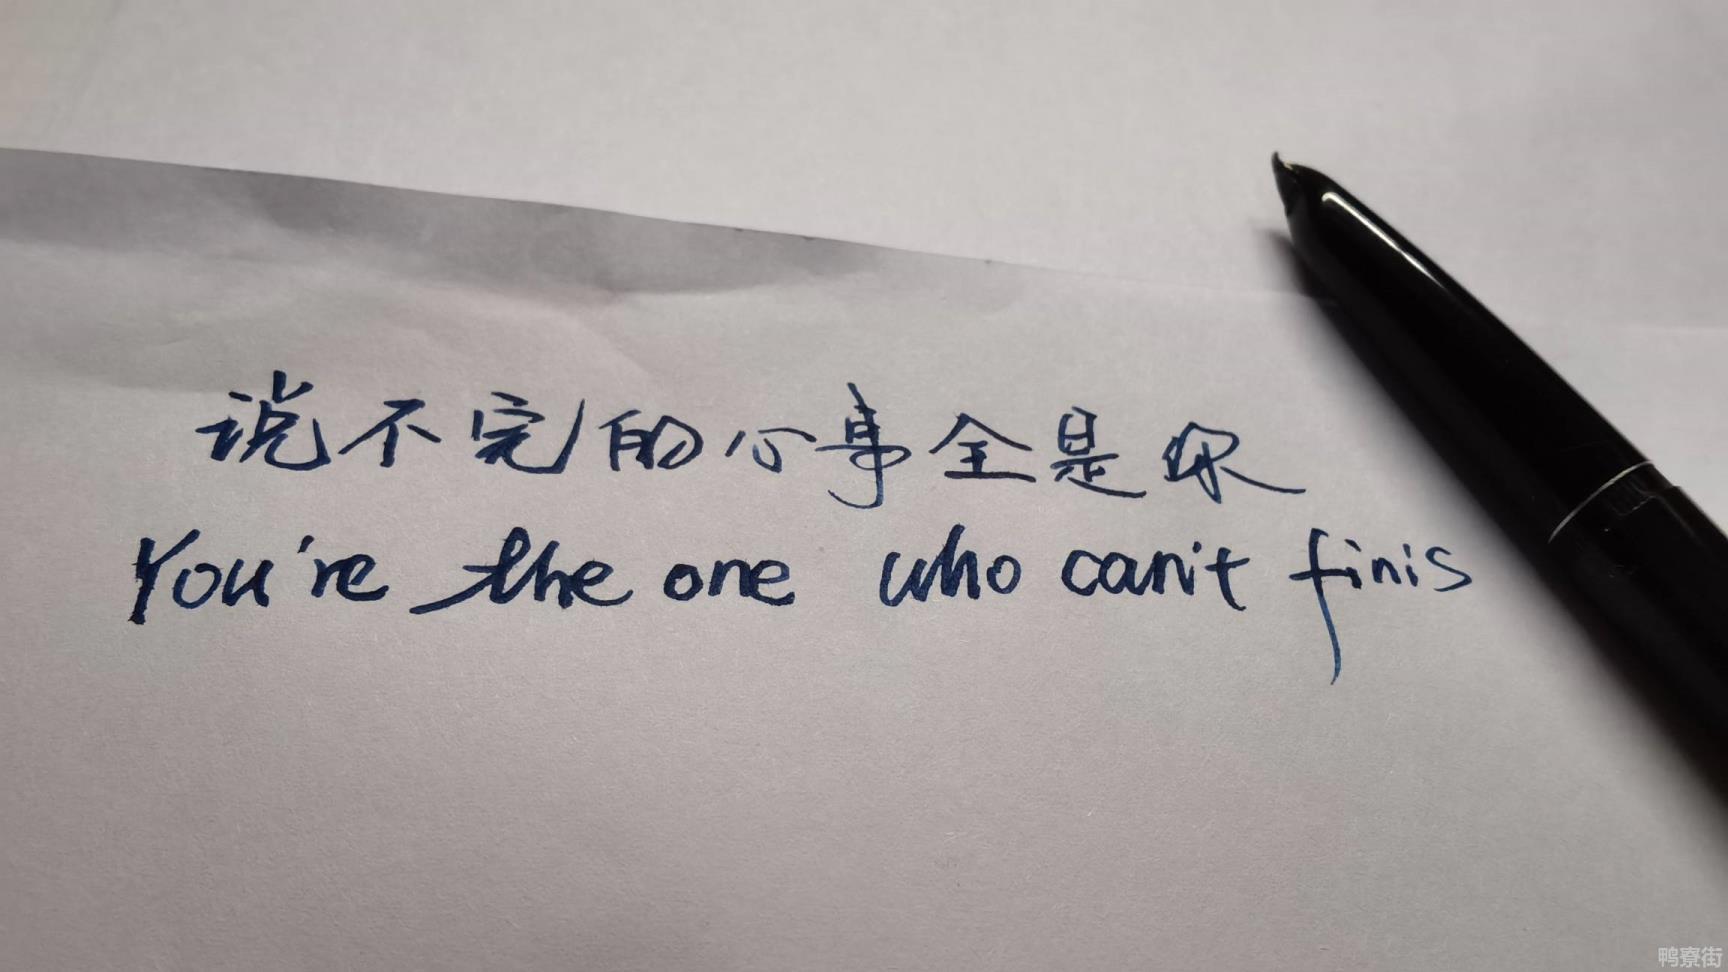 说不完的心事全是你
You're the one who can't finis
鸭寮街